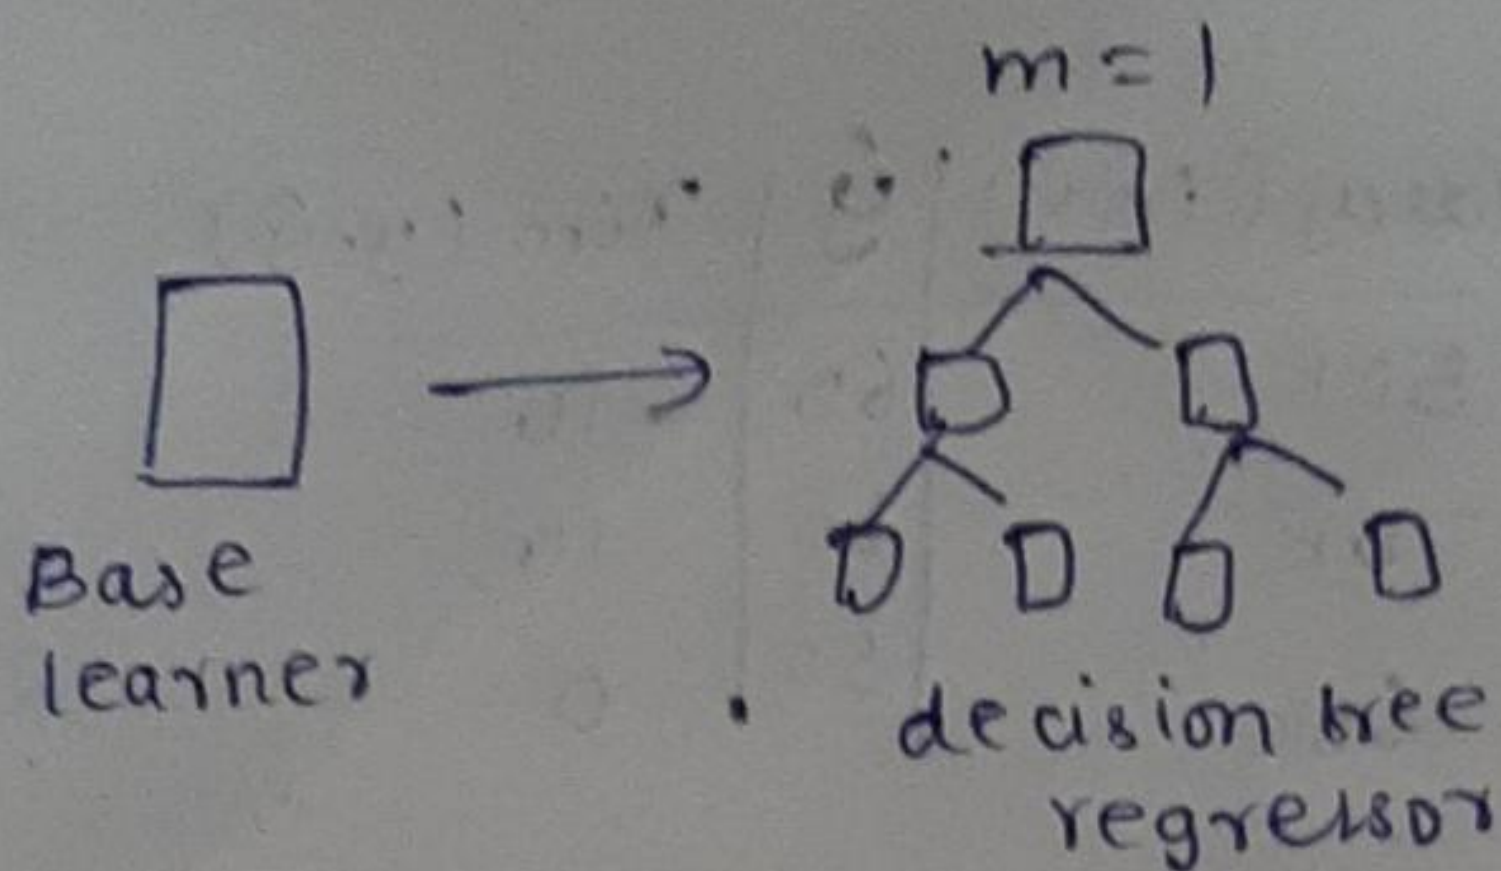 m = 1
Base
learner
decision tree
regressor